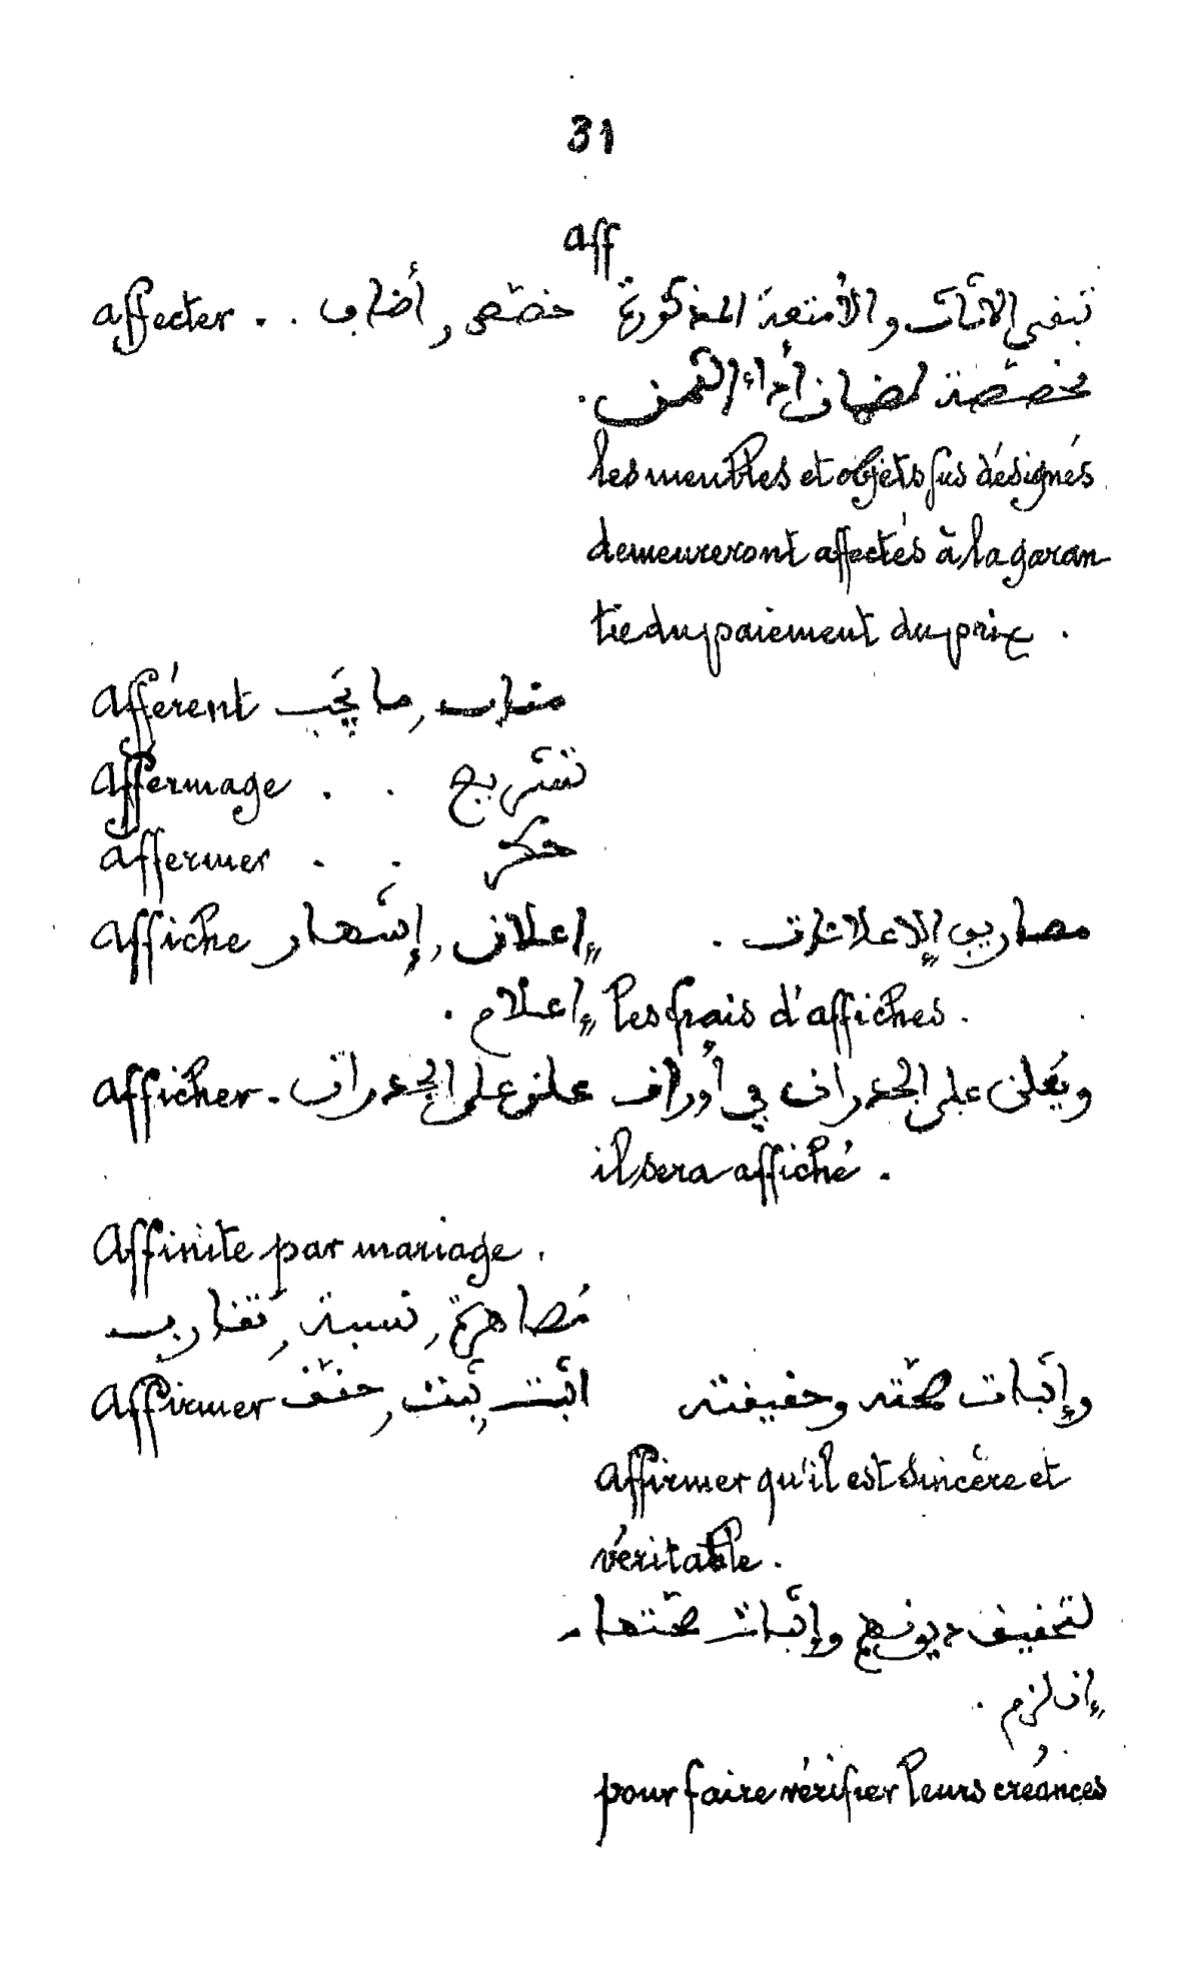 31
aff
affecter . . خصّص, أضاف تبقى الاثاث والأمتعة المذكورة
مخصّصة لضمان أداء الثمن .
les meubles et objets sus désignés
demeureront affectés à la garan
tie du paiement du prix .
Afférent مناب, ما يجب
Affermage . .
affermer . . حكر
Affiche إعلان, إشهار مصاريف الإعلانات .
إعلام . les frais d'affiches .
afficher . علق على الجدران ويعلق على الجدران في أوراق
il sera affiché .
Affinite par mariage .
مُصاهرة, نسبة, تقارب
Affirmer اثبت, ثبّت, حقّق وإثبات صحّته وحقيقته
Affirmer qu'il est sincère et
véritable .
لتحقيق ديونهم وإثبات صحّتها
إن لزم .
pour faire vérifier leurs créances